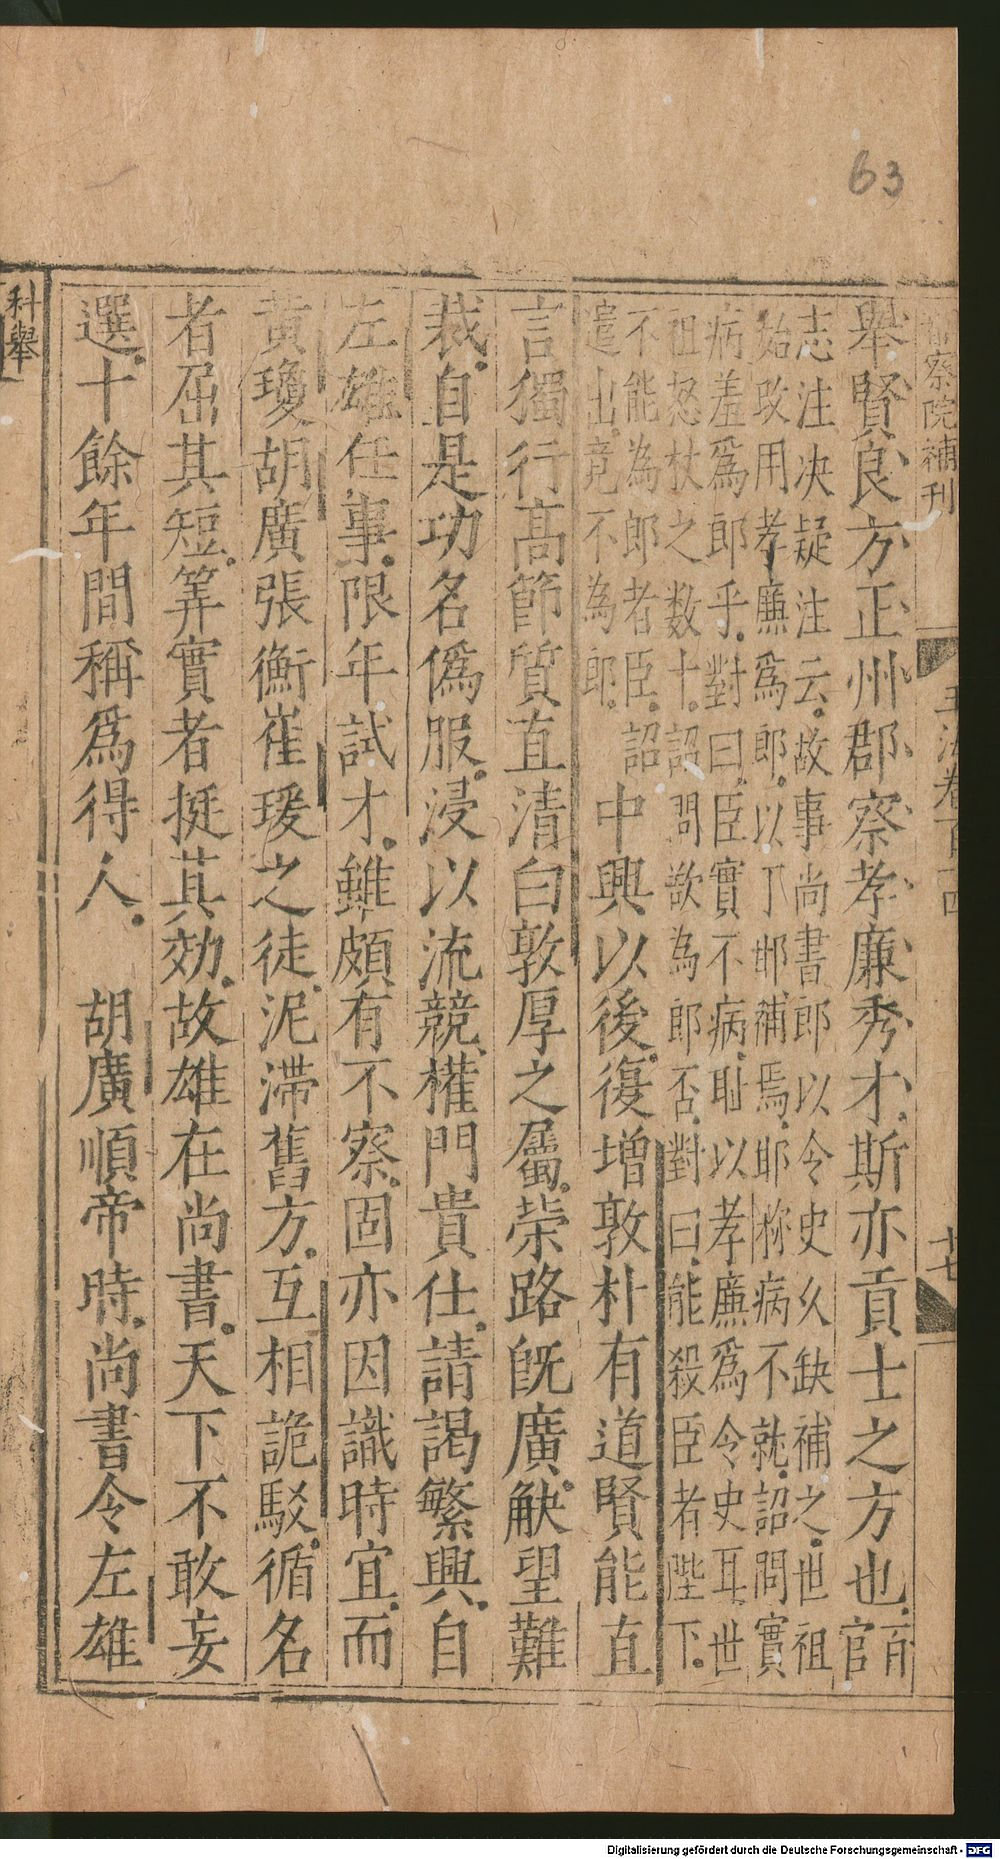 63
察院補刊
卷百十四
十七
舉賢良方正州郡察孝廉秀才斯亦貢士之方也百
官
志注决疑注云故事尚書郎以令史久缺補之世祖
始改用孝廉爲郎以丁邯補焉邯稱病不就詔問實
病羞爲郎乎對曰臣實不病耻以孝廉爲令史耳世
祖怒杖之数十詔問欲為郎否對曰能殺臣者陛下
不能為郎者臣詔
遣出竟不為郎
中興以後復增敦朴有道賢能直
言獨行高節質直清白敦厚之屬榮路旣廣觖望難
裁自是功名僞服浸以流競權門貴仕請謁繁興自
左雄任事限年試才雖頗有不察固亦因識時宜而
黃瓊胡廣張衡崔瑗之徒泥滯舊方互相詭駁循名
者屈其短筭實者挺其効故雄在尚書天下不敢妄
選十餘年間稱爲得人　胡廣順帝時尚書令左雄
科舉
Digitalisierung gefördert durch die Deutsche Forschungsgemeinschaft - DFG